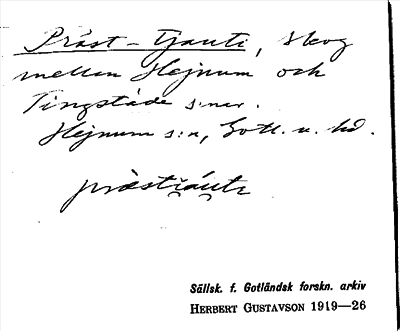 Präst-Tjauti, skog
mellan Hejnum och
Tingstäde s:nar.
Hejnum s:n, Gotl. n. hd.
Sällsk. f. Gotländsk forskn. arkiv
HERBERT GUSTAVSON 1919—26